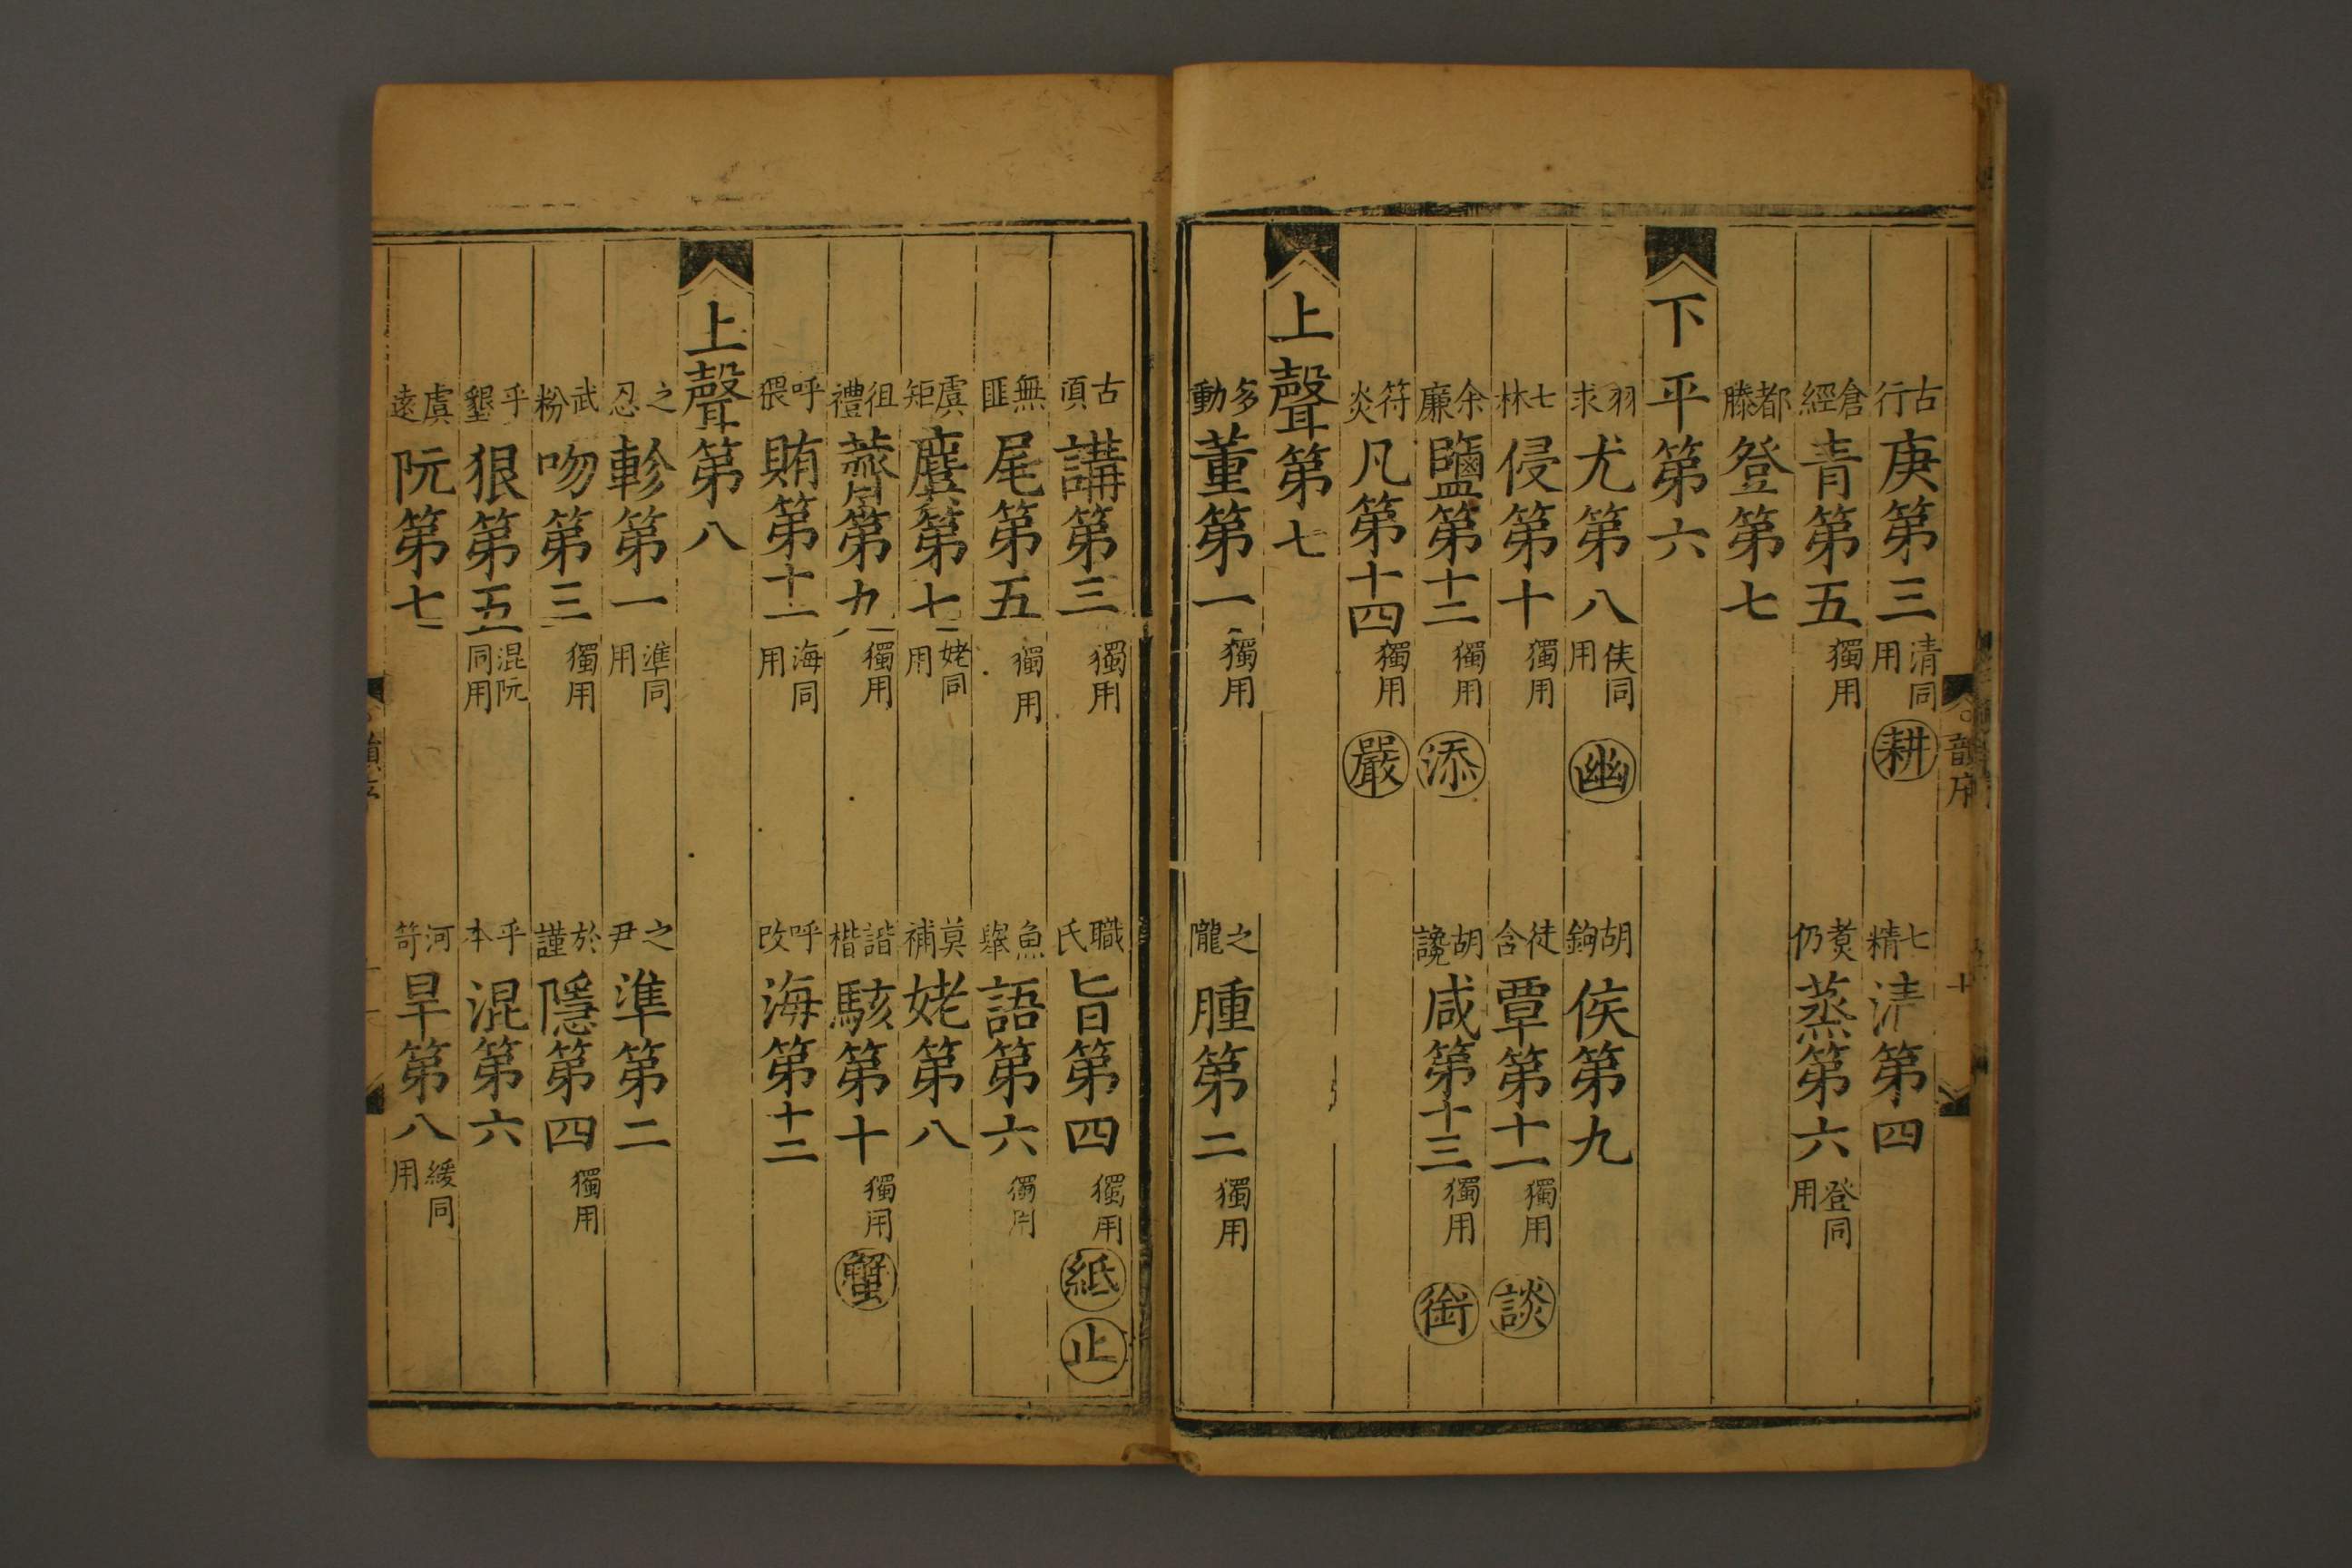 古行庚第三清同用耕 七精清第四
倉經青第五獨用 煑仍蒸第六登同用
都滕登第七
下平第六
羽求尤第八侯同用幽 胡鉤侯第九
七林侵第十獨用 徒含覃第十一獨用談
余廉鹽第十二獨用添 胡讒咸第十三獨用銜
符炎凡第十四獨用嚴
上聲第七
多動董第一獨用 之隴腫第二獨用
古項講第三獨用 職氏旨第四獨用紙止
無匪尾第五獨用 魚舉語第六獨用
虞矩麌第七姥同用 莫補姥第八
徂禮薺第九獨用 諧楷駭第十獨用蟹
呼猥賄第十一海同用 呼改海第十二
上聲第八
之忍軫第一準同用 之尹準第二
武粉吻第三獨用 於謹隱第四獨用
乎墾狠第五混阮同用 乎本混第六
虞遠阮第七 河笴旱第八緩同用